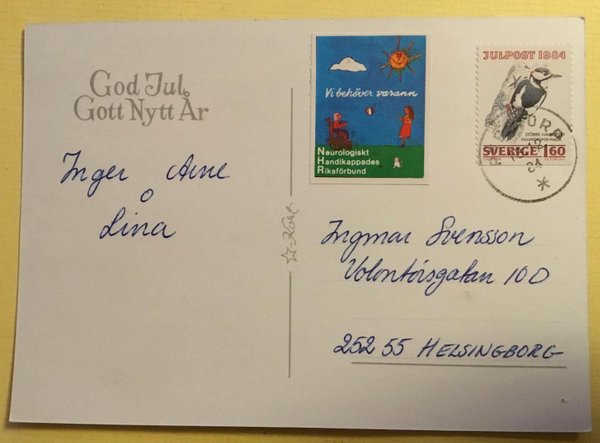 God Jul,
Gott Nytt År
Inger Arne
o
Lina
Vi behöver varann
Neurologiskt
Handikappades
Riksförbund
JULPOST 1984
SVERIGE 160
Ingmar Svensson
Volontörsgatan 10D
252 55 HELSINGBORG